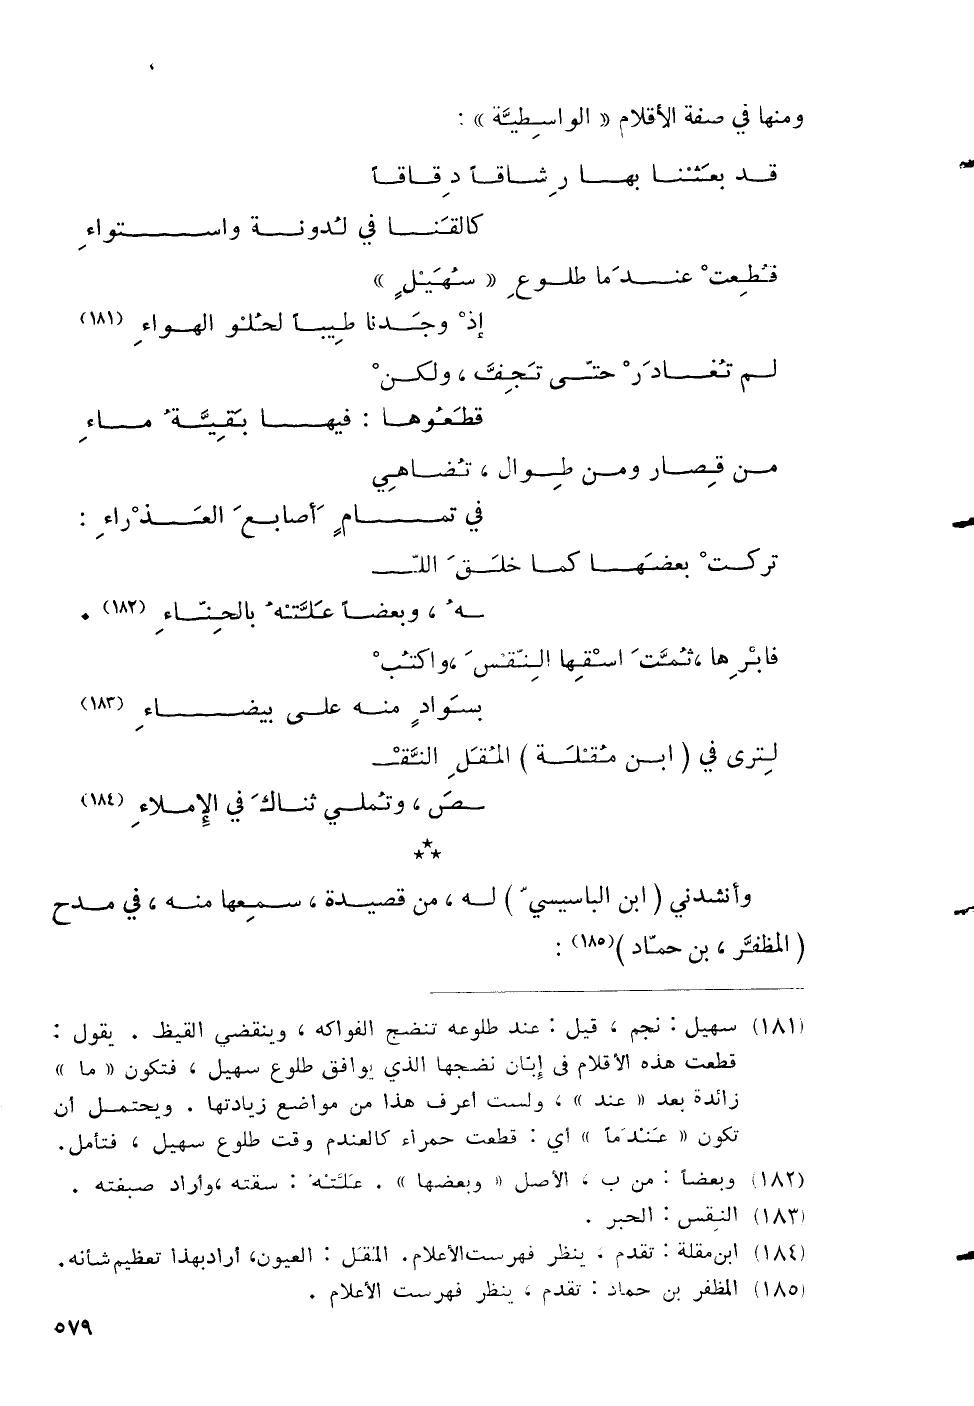 ومنها في صفة الأقلام « الواسِطيَّة » :
قد بعَثْنا بها رِشاقاً دِقاقاً
كالقَنا في لُدونة واستواءِ
قُطِعتْ عندَما طلوعِ « سُهَيْلٍ »
إذْ وجَدنا طِيباً لحُلْو الهواءِ (١٨١)
لم تُغادَرْ حتّى تَجِفَّ ، ولكنْ
قطَعُوها : فيها بَقِيَّةُ ماءِ
من قِصار ومن طِوال ، تُضاهِي
في تمامٍ أصابعَ العَذْراءِ :
تركتْ بعضَها كما خلَقَ اللّـ
ـهُ ، وبعضاً عَلَّتْهُ بالحِنّاءِ (١٨٢) .
فابْرِها ،ثُمَّتَ اسْقِها النِّقْسَ ،واكتُبْ
بسَوادٍ منه على بيضاءِ (١٨٣)
لِترى في ( ابن مُقْلَة ) المُقَلِ النَّقْـ
ـصَ ، وتُملي ثناكَ في الإِملاءِ (١٨٤)
***
وأنشدني ( ابن الباسيسيّ ) له ، من قصيدة ، سمِعها منه ، في مدح
( المظفَّر ، بن حمّاد )(١٨٥) :
(١٨١) سهيل : نجم ، قيل : عند طلوعه تنضج الفواكه ، وينقضي القيظ . يقول :
قطعت هذه الأقلام في إبّان نضجها الذي يوافق طلوع سهيل ، فتكون « ما »
زائدة بعد « عند » ، ولست أعرف هذا من مواضع زيادتها . ويحتمل أن
تكون « عَنْدَماً » أي : قطعت حمراء كالعندم وقت طلوع سهيل ، فتأمل.
(١٨٢) وبعضاً : من ب ، الأصل « وبعضها » . عَلَّتْهُ : سقته ،وأراد صبغته .
(١٨٣) النِقس : الحبر .
(١٨٤) ابن مقلة : تقدم ، ينظر فهرست الأعلام. المُقَل : العيون، أراد بهذا تعظيم شأنه.
(١٨٥) المظفر بن حماد : تقدم ، ينظر فهرست الأعلام .
٥٧٩